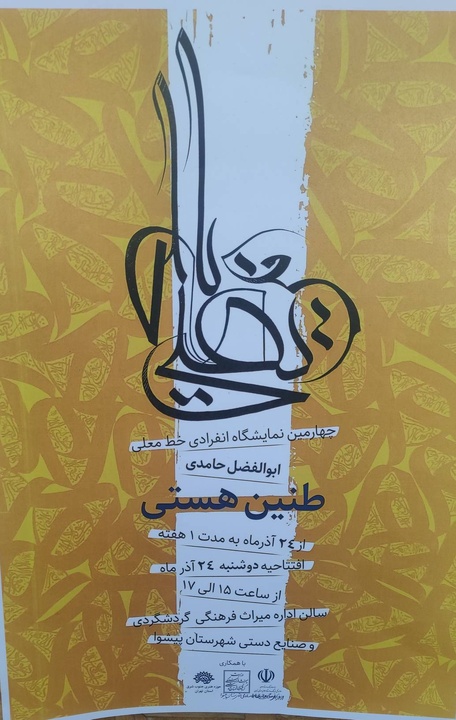 چهارمین نمایشگاه انفرادی خط معلی
ابوالفضل حامدی
طنین هستی
از ۲۴ آذرماه به مدت ۱ هفته
افتتاحیه دوشنبه ۲۴ آذر ماه
از ساعت ۱۵ الی ۱۷
سالن اداره میراث فرهنگی گردشگردی
و صنایع دستی شهرستان پیشوا
با همکاری